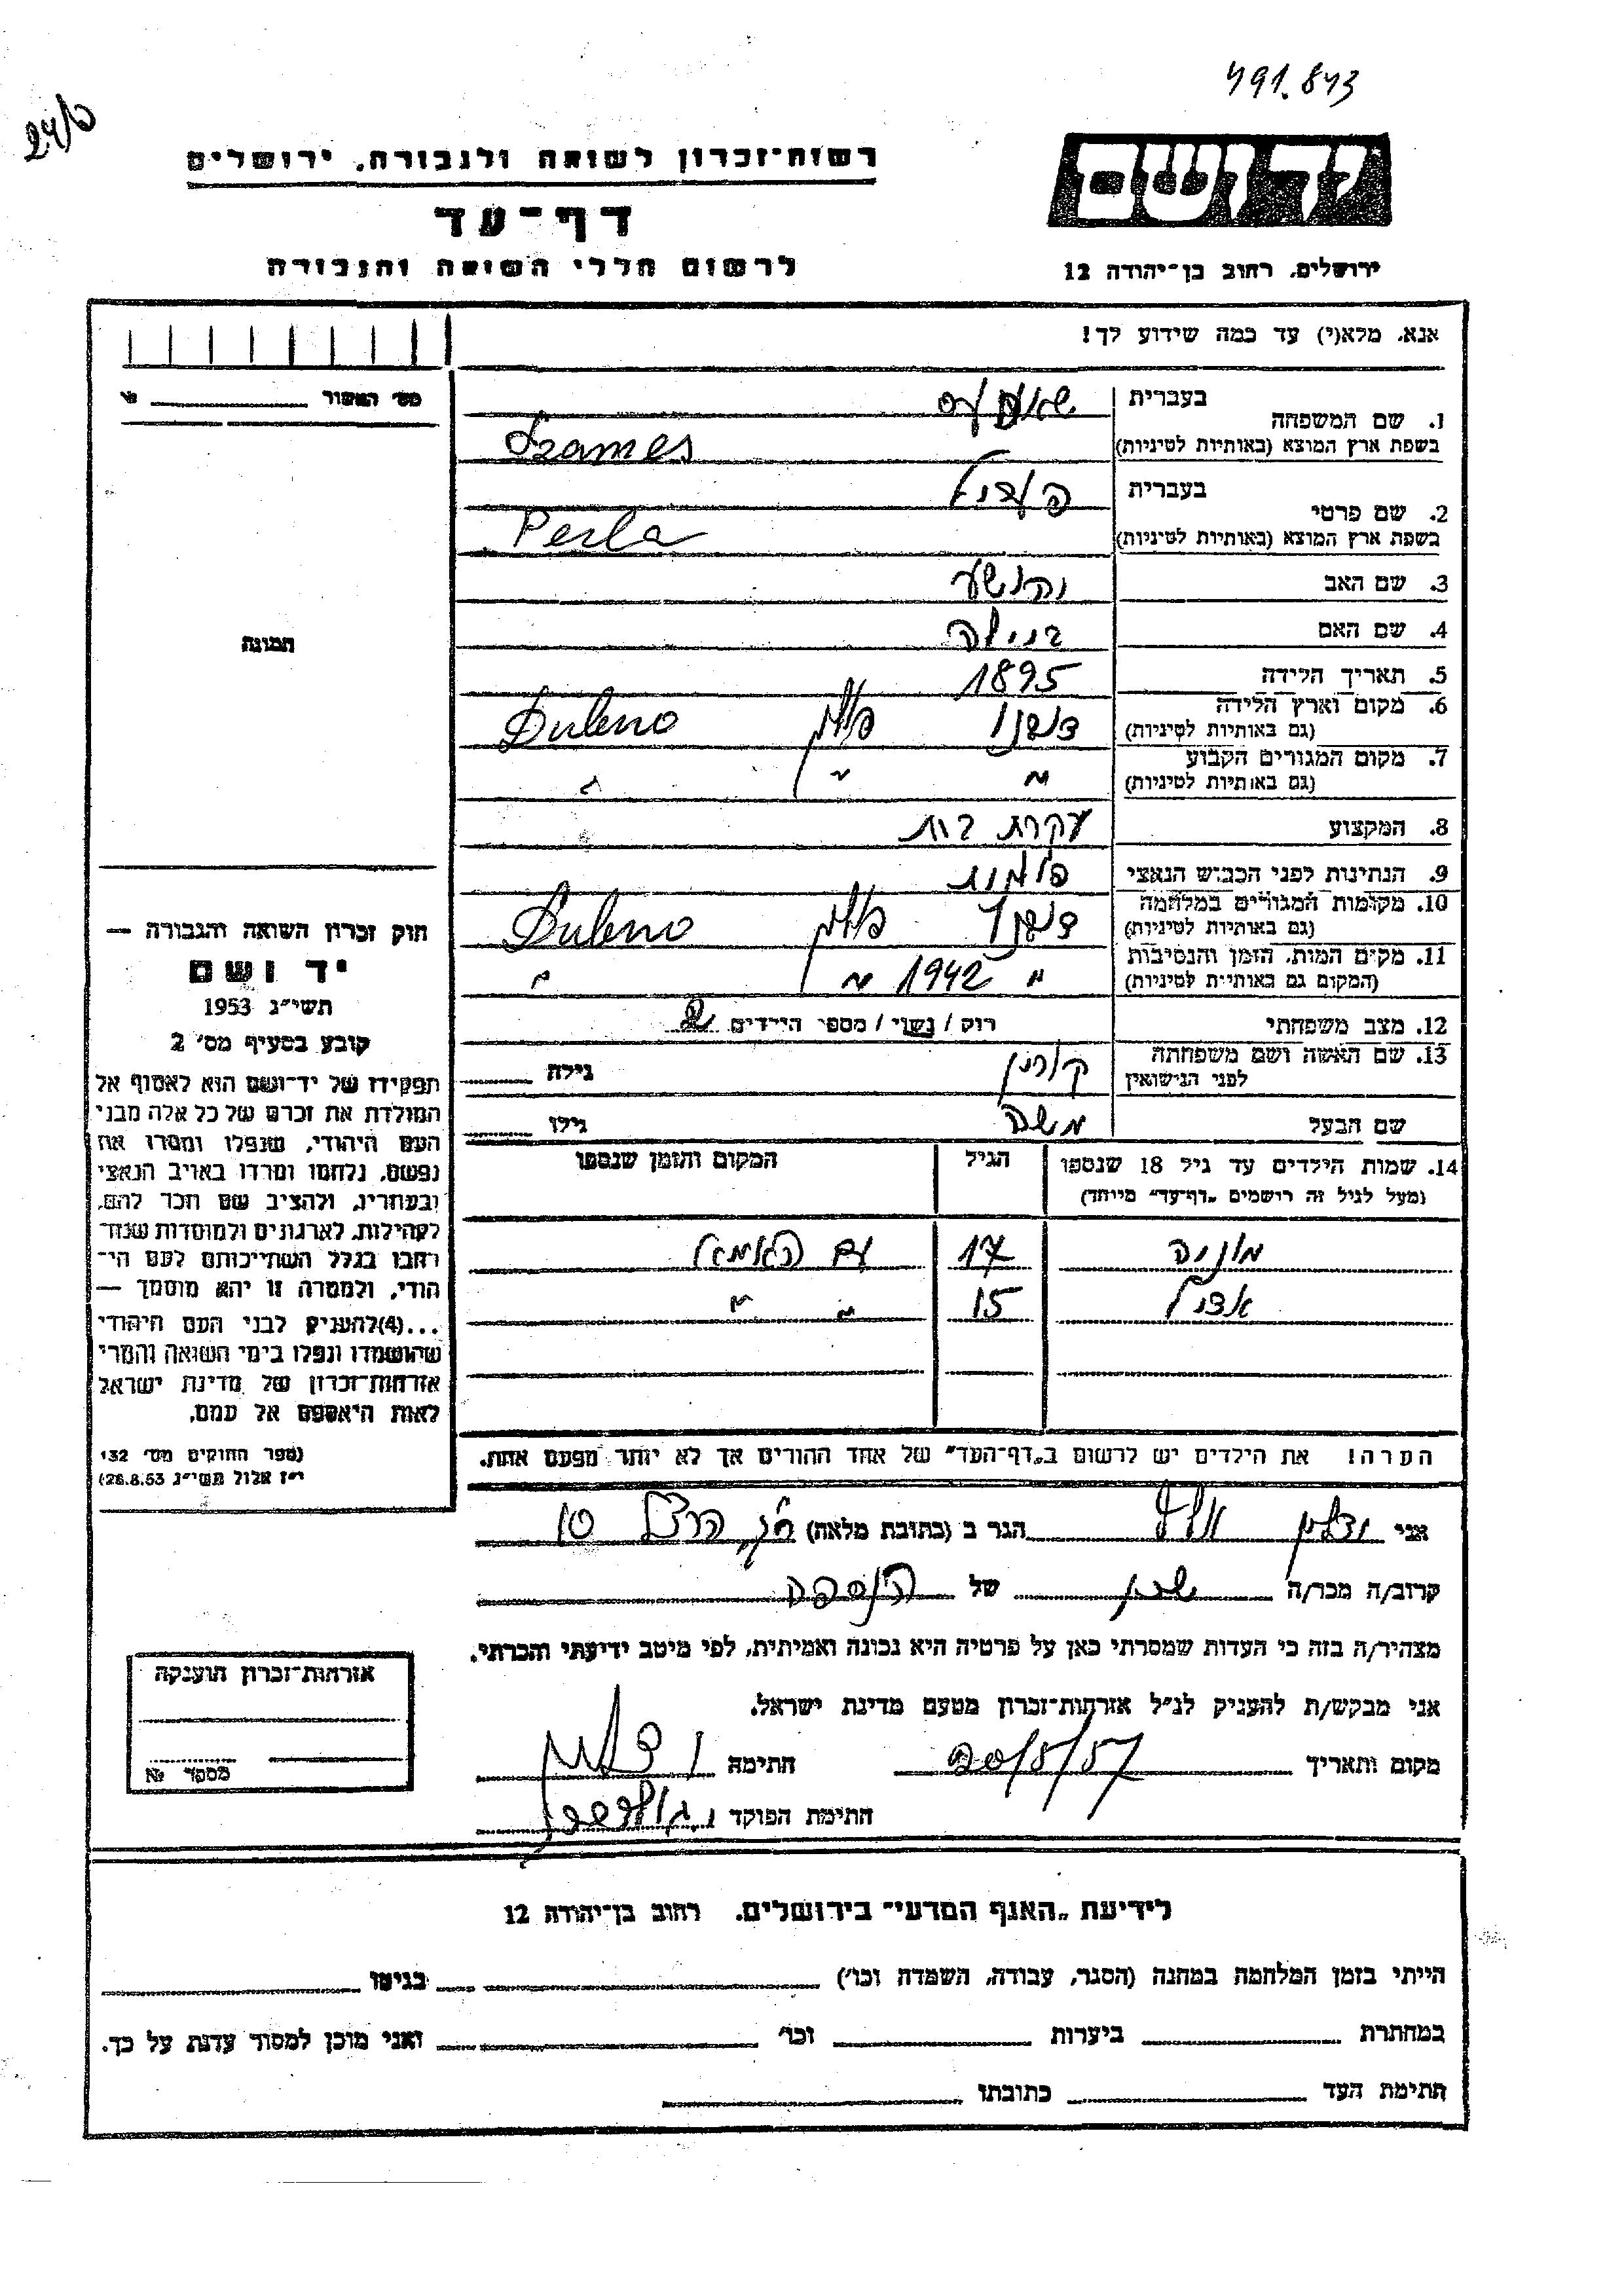 491.843
24/ט
רשות־זכרון לשואה ולגבורה, ירושלים
יד ושם
דף־עד
לרשום חללי השואה והגבורה
ירושלים, רחוב בן־יהודה 12
אנא, מלא(י) עד כמה שידוע לך!
מס׳ האשור
1. שם המשפחה
בעברית
בשפת ארץ המוצא (באותיות לטיניות) Szames
2. שם פרטי
בעברית פערל
בשפת ארץ המוצא (באותיות לטיניות) Perla
3. שם האב יהושע
4. שם האם ביילה
5. תאריך הלידה 1895
6. מקום וארץ הלידה
(גם באותיות לטיניות) דובנו פולין Dubno
7. מקום המגורים הקבוע
(גם באותיות לטיניות) " " "
8. המקצוע עקרת בית
9. הנתינות לפני הכבוש הנאצי פולנית
10. מקומות המגורים במלחמה
(גם באותיות לטיניות) דובנו פולין Dubno
11. מקום המות, הזמן והנסיבות
(המקום גם באותיות לטיניות) " 1942 " "
12. מצב משפחתי רווק / נשוי / מספר הילדים 2
13. שם האשה ושם משפחתה
לפני הנישואין גילה
שם הבעל משה גילו
14. שמות הילדים עד גיל 18 שנספו הגיל המקום והזמן שנספו
(מעל לגיל זה רושמים „דף־עד״ מיוחד)
מוניה 17 עם האמא
אדל 15 " "
הערה! את הילדים יש לרשום ב„דף־העד״ של אחד ההורים אך לא יותר מפעם אחת.
תמונה
חוק זכרון השואה והגבורה —
יד ושם
תשי״ג 1953
קובע בסעיף מס׳ 2
תפקידו של יד־ושם הוא לאסוף אל
המולדת את זכרם של כל אלה מבני
העם היהודי, שנפלו ומסרו את
נפשם, נלחמו ומרדו באויב הנאצי
ובעוזריו, ולהציב שם וזכר להם,
לקהילות, לארגונים ולמוסדות שנח־
רבו בגלל השתייכותם לעם הי־
הודי, ולמטרה זו יהא מוסמך —
...(4)להעניק לבני העם היהודי
שהושמדו ונפלו בימי השואה והמרי
אזרחות־זכרון של מדינת ישראל
לאות היאספם אל עמם.
(ספר החוקים מס׳ 132
י״ז אלול תשי״ג 28.8.53)
אני הגר ב (כתובת מלאה)
קרוב/ה מכר/ה שכן של הנספה
מצהיר/ה בזה כי העדות שמסרתי כאן על פרטיה היא נכונה ואמיתית, לפי מיטב ידיעתי והכרתי.
אני מבקש/ת להעניק לנ״ל אזרחות־זכרון מטעם מדינת ישראל.
מקום ותאריך 20/5/57 חתימה
חתימת הפוקד
אזרחות־זכרון הוענקה
מספר №
לידיעת „האגף המדעי״ בירושלים, רחוב בן־יהודה 12
הייתי בזמן המלחמה במחנה (הסגר, עבודה, השמדה וכו׳) בגיטו
במחתרת ביערות וכו׳ ואני מוכן למסור עדות על כך.
חתימת העד כתובתו